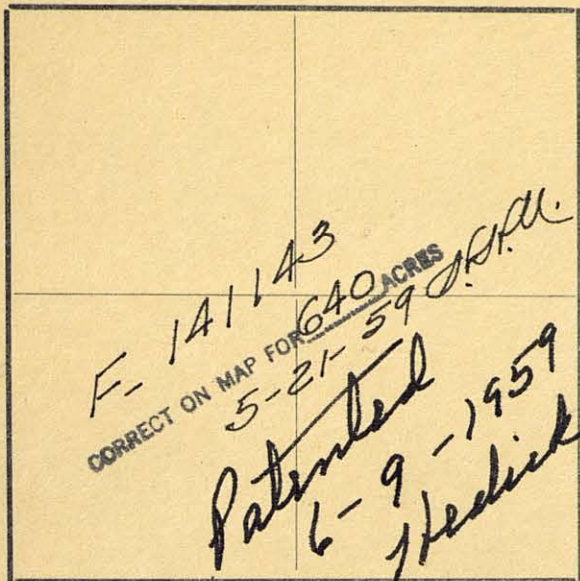 F- 141143
CORRECT ON MAP FOR 640 ACRES
5-21-59
Patented
6-9-1959
Hedick